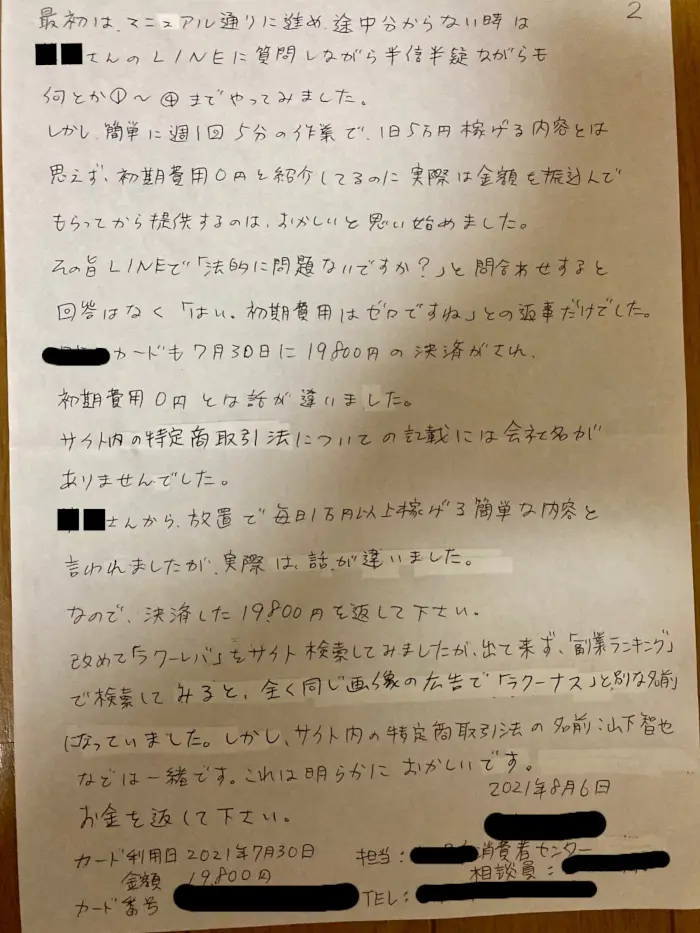 2
最初は、マニュアル通りに進め、途中分からない時は
さんのLINEに質問しながら半信半錠ながらも
何とか①〜④までやってみました。
しかし、簡単に週1回5分の作業で、1日5万円稼げる内容とは
思えず、初期費用0円と紹介してるのに実際は金額を振込んで
もらってから提供するのは、おかしいと思い始めました。
その旨LINEで「法的に問題ないですか?」と問合わせすると
回答はなく「はい。初期費用はゼロですね」との返事だけでした。
カードも7月30日に19800円の決済がされ、
初期費用0円とは話が違いました。
サイト内の特定商取引法についての記載には会社名が
ありませんでした。
さんから、放置で毎日1万円以上稼げる簡単な内容と
言われましたが、実際は、話が違いました。
なので、決済した19,800円を返して下さい。
改めて「ラクーレバ」をサイト検索してみましたが、出て来ず、「副業ランキング」
で検索してみると、全く同じ画像の広告で「ラクーナス」と別な名前
になっていました。しかし、サイト内の特定商取引法の名前:山下智也
などは一緒です。これは明らかにおかしいです。
2021年8月6日
お金を返して下さい。
カード利用日 2021年7月30日
金額 19,800円
カード番号
担当: 消費者センター
相談員:
TEL: